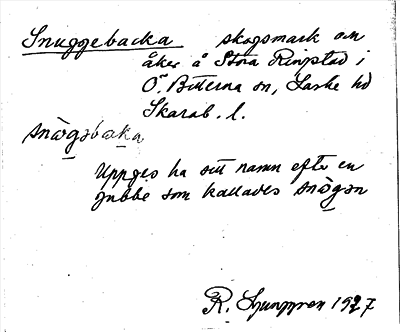 Snuggebacka skogsmark och
åker å Stora Ringstad i
Ö. Bitterna sn, Laske hd
Skarab. l.
snògsbaka
Uppges ha sitt namn efter en
gubbe som kallades snògsn
R. Ljunggren 1927